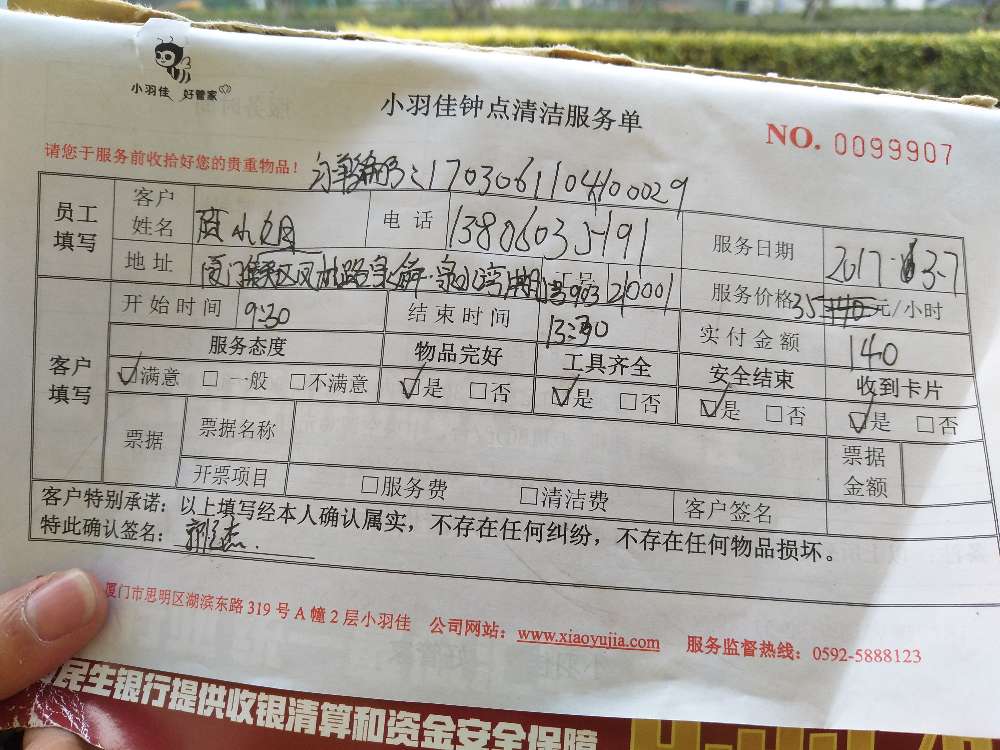 小羽佳 好管家
小羽佳钟点清洁服务单
NO. 0099907
请您于服务前收拾好您的贵重物品！
订单编号：1703061104100029
员工填写
客户姓名
电话 13806035191
服务日期 2017.3.7
地址 厦门 区 路
服务价格 35 元/小时
客户填写
开始时间 9:30
结束时间 13:30
实付金额 140
服务态度 物品完好 工具齐全 安全结束 收到卡片
☑满意 □一般 □不满意 ☑是 □否 ☑是 □否 ☑是 □否 ☑是 □否
票据 票据名称 票据金额
开票项目 □服务费 □清洁费 客户签名
客户特别承诺：以上填写经本人确认属实，不存在任何纠纷，不存在任何物品损坏。
特此确认签名：
厦门市思明区湖滨东路 319 号 A 幢 2 层小羽佳 公司网站：www.xiaoyujia.com 服务监督热线：0592-5888123
民生银行提供收银清算和资金安全保障